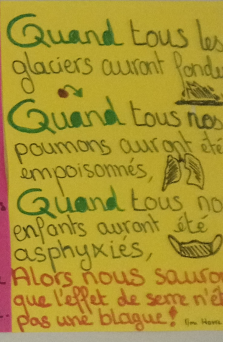 Quand tous les
glaciers auront fondu
Quand tous nos
poumons auront été
empoisonnés,
Quand tous no
enfants auront été
asphyxiés,
Alors nous sauron
que l'effet de serre n'ét
pas une blague!